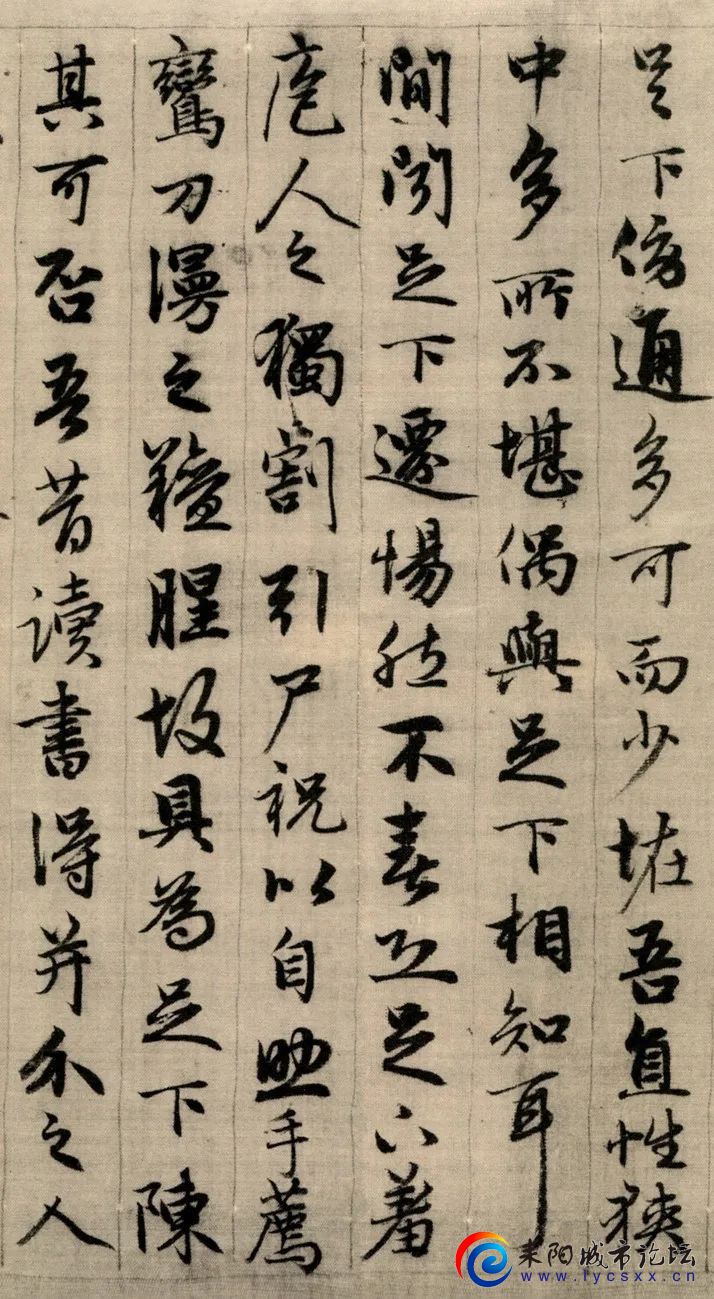 足下傍通多可而少恠吾直性狹
中多所不堪偶與足下相知耳
間聞足下遷惕然不喜恐足下羞
庖人之獨割引尸祝以自助手薦
鸞刀漫之羶腥故具為足下陳
其可否吾昔讀書得并介之人
耒阳城市论坛
www.lycsxx.cn